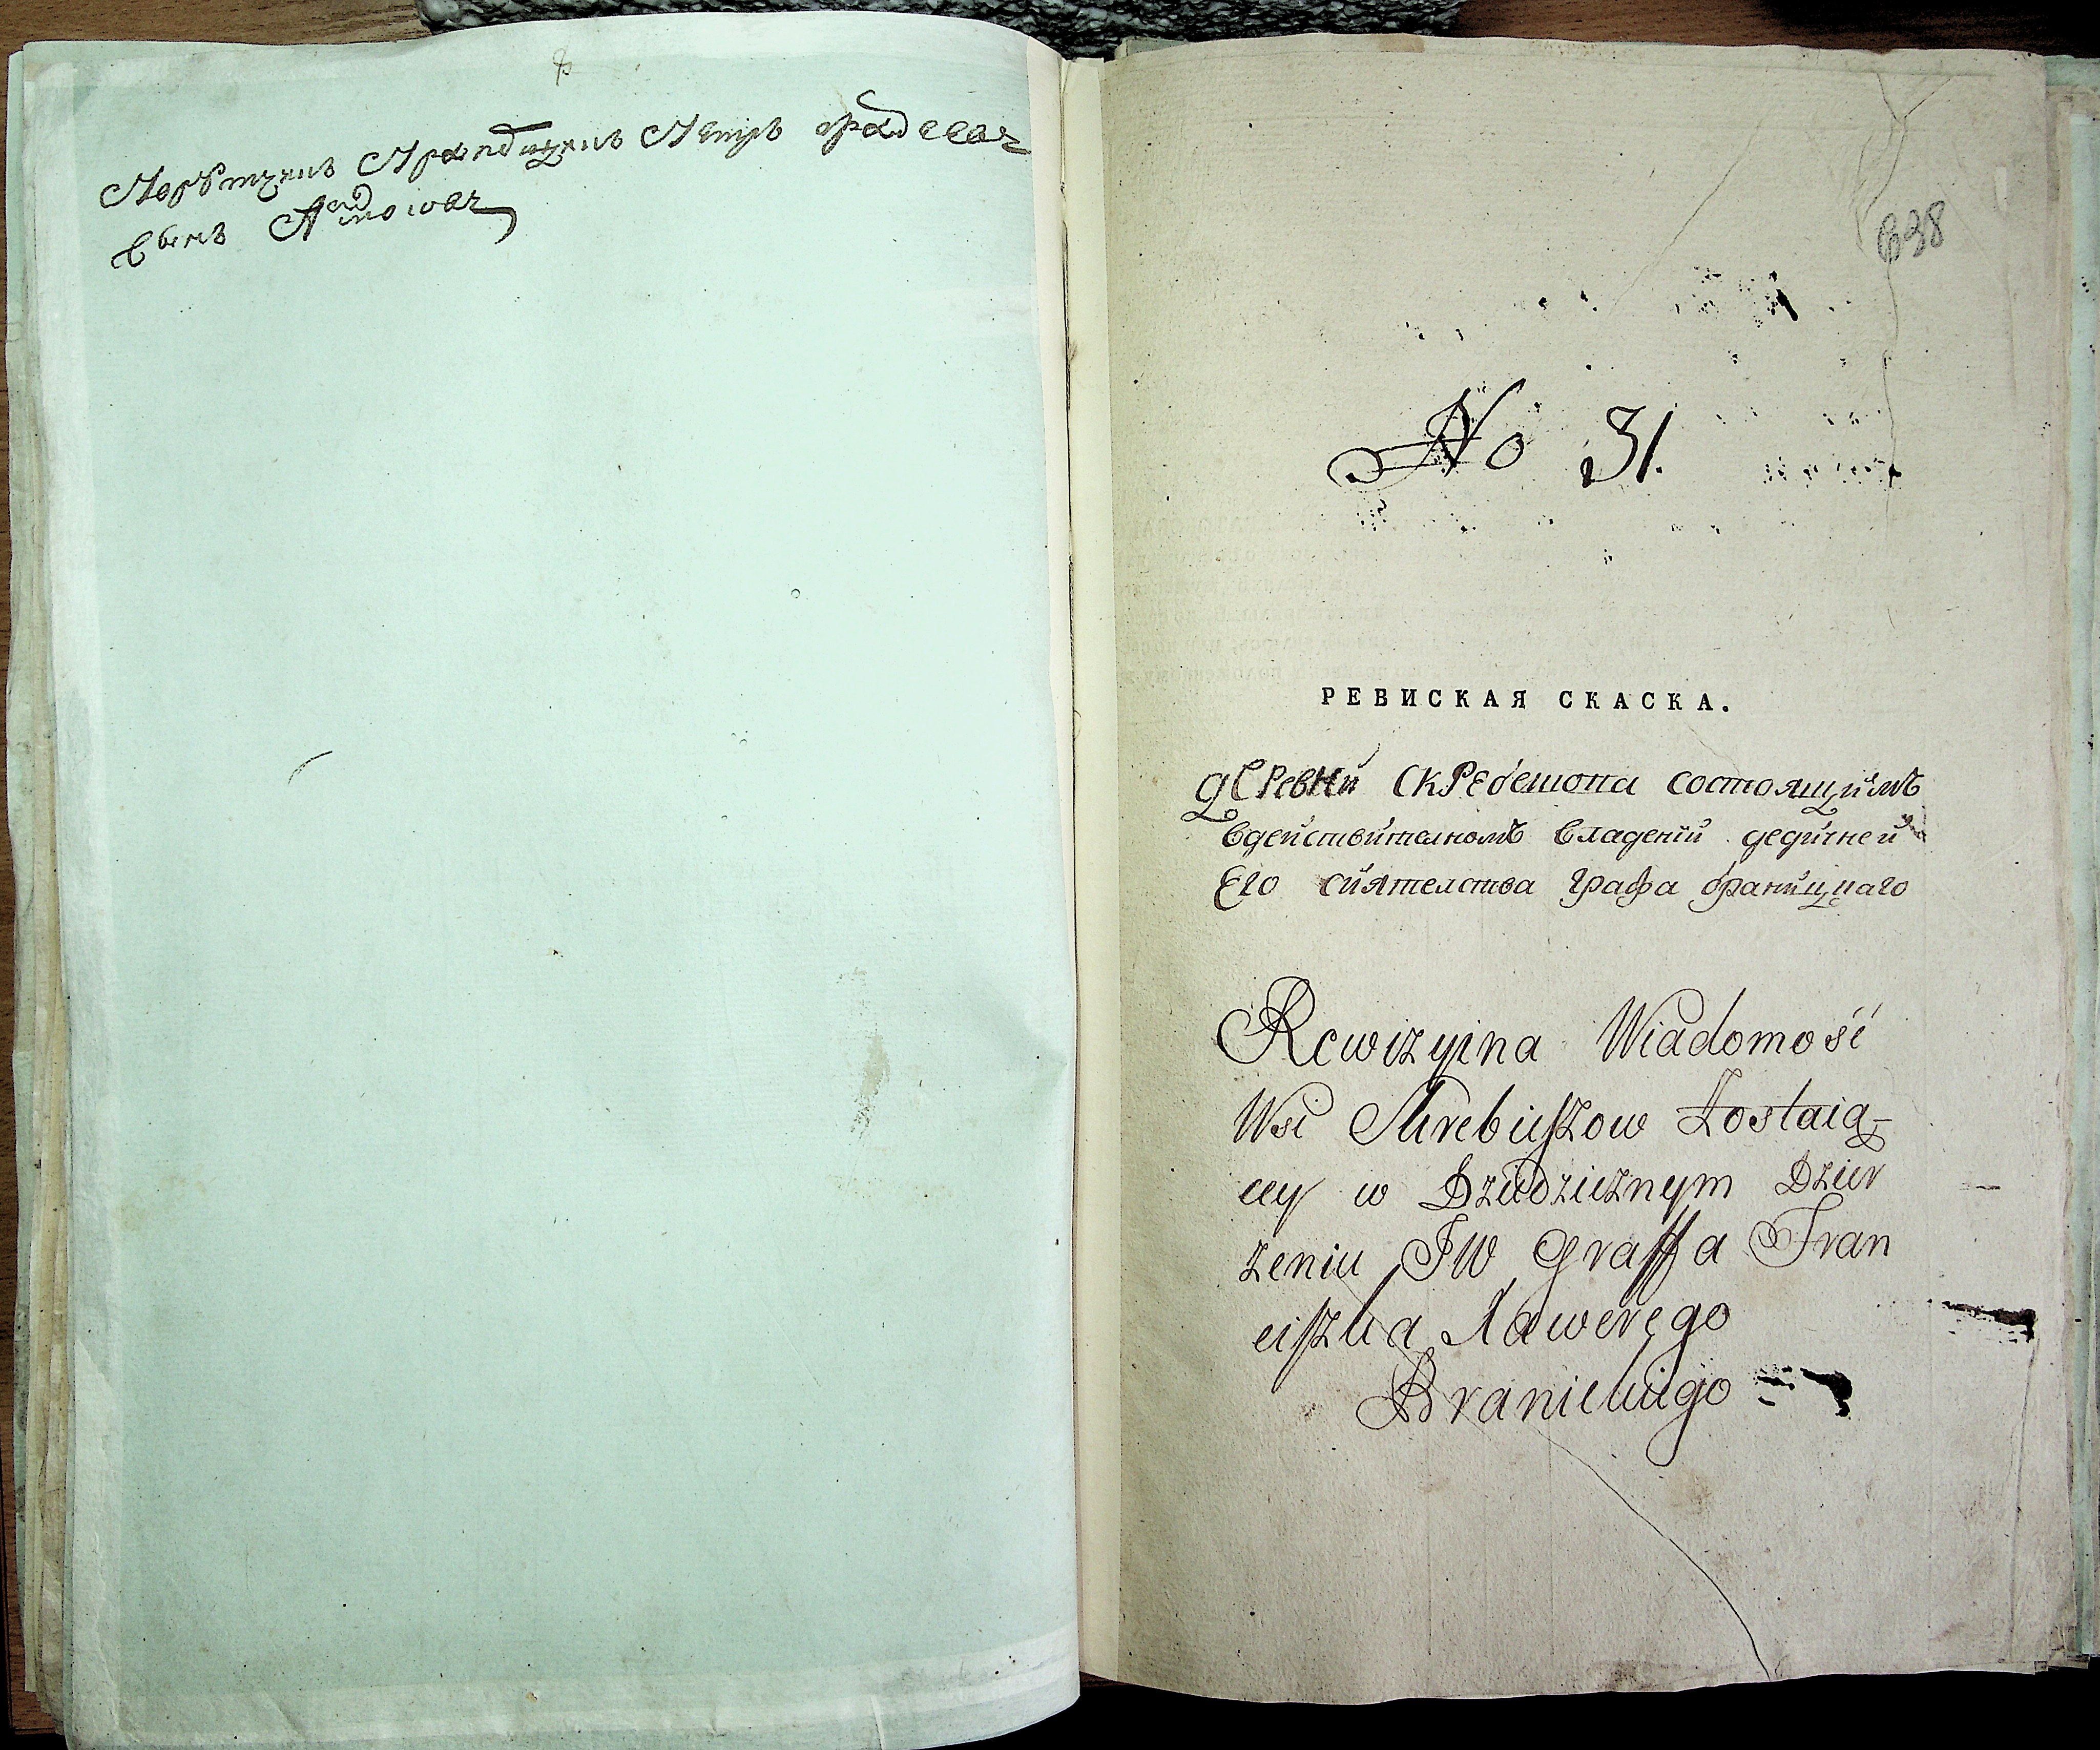 Петръ
сынъ
638
No 31.
РЕВИСКАЯ СКАСКА.
деревни Скребешова состоящимъ
вдействителномъ владении дедичней
Его сиятелства графа браницкаго
Rewizyina Wiadomość
Wsi Skrebiszow Zostaią-
cey w Dziedzicznym Dzier
zeniu JW Graffa Fran
ciszka Xawerego
Branickiego